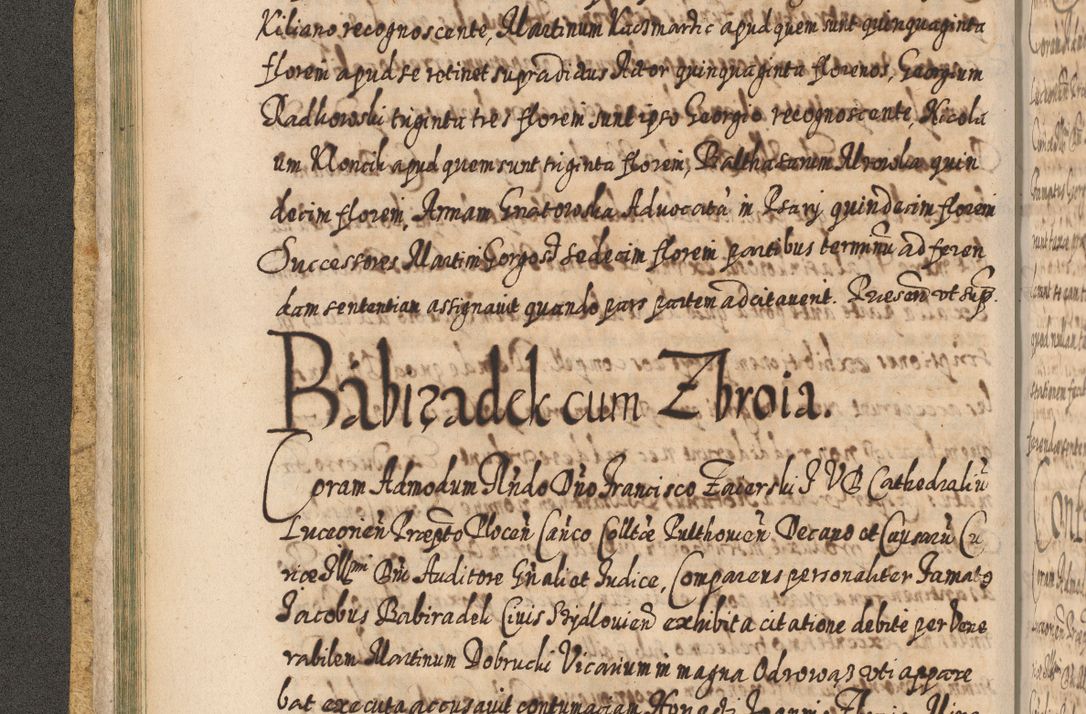 Kiliano recognoscente, Martinum Kacsmarzic apud quem sunt quinquaginta
floreni apud se retinet supradictus Actor quinquaginta florenos, Georgium
Radkowski triginta tres floreni sunt ipso Georgio recognoscente, Nicola
um Kloncik apud quem sunt triginta floreni, Balthasarum Mrowka quin
decim floreni, Annam Gnatowska Advocata in Psary quindecim floreni
Successores Martini Gorgos sedecim floreni partibus terminu ad feren
dam sententiam assignavit quando pars partem adcitavent. Præsen ut sup.
Babiradek cum Zbroia.
Coram Admodum Rndo Dno Francisco Zaierski I V D Cathedraliu
Luceorien Præpto Plocen Canco Colltæ Pulthovien Decano et Causaru Cu
riæ Illmi Dni Auditore Gnali et Iudice, Comparens personaliter Famatg
Jacobus Babiradek Civis Szydlovien exhibita citatione debite per Vene
rabilem Martinum Dobrucki Vicarium in magna Odrowas uti appare
bat executa accusavit contumaciam